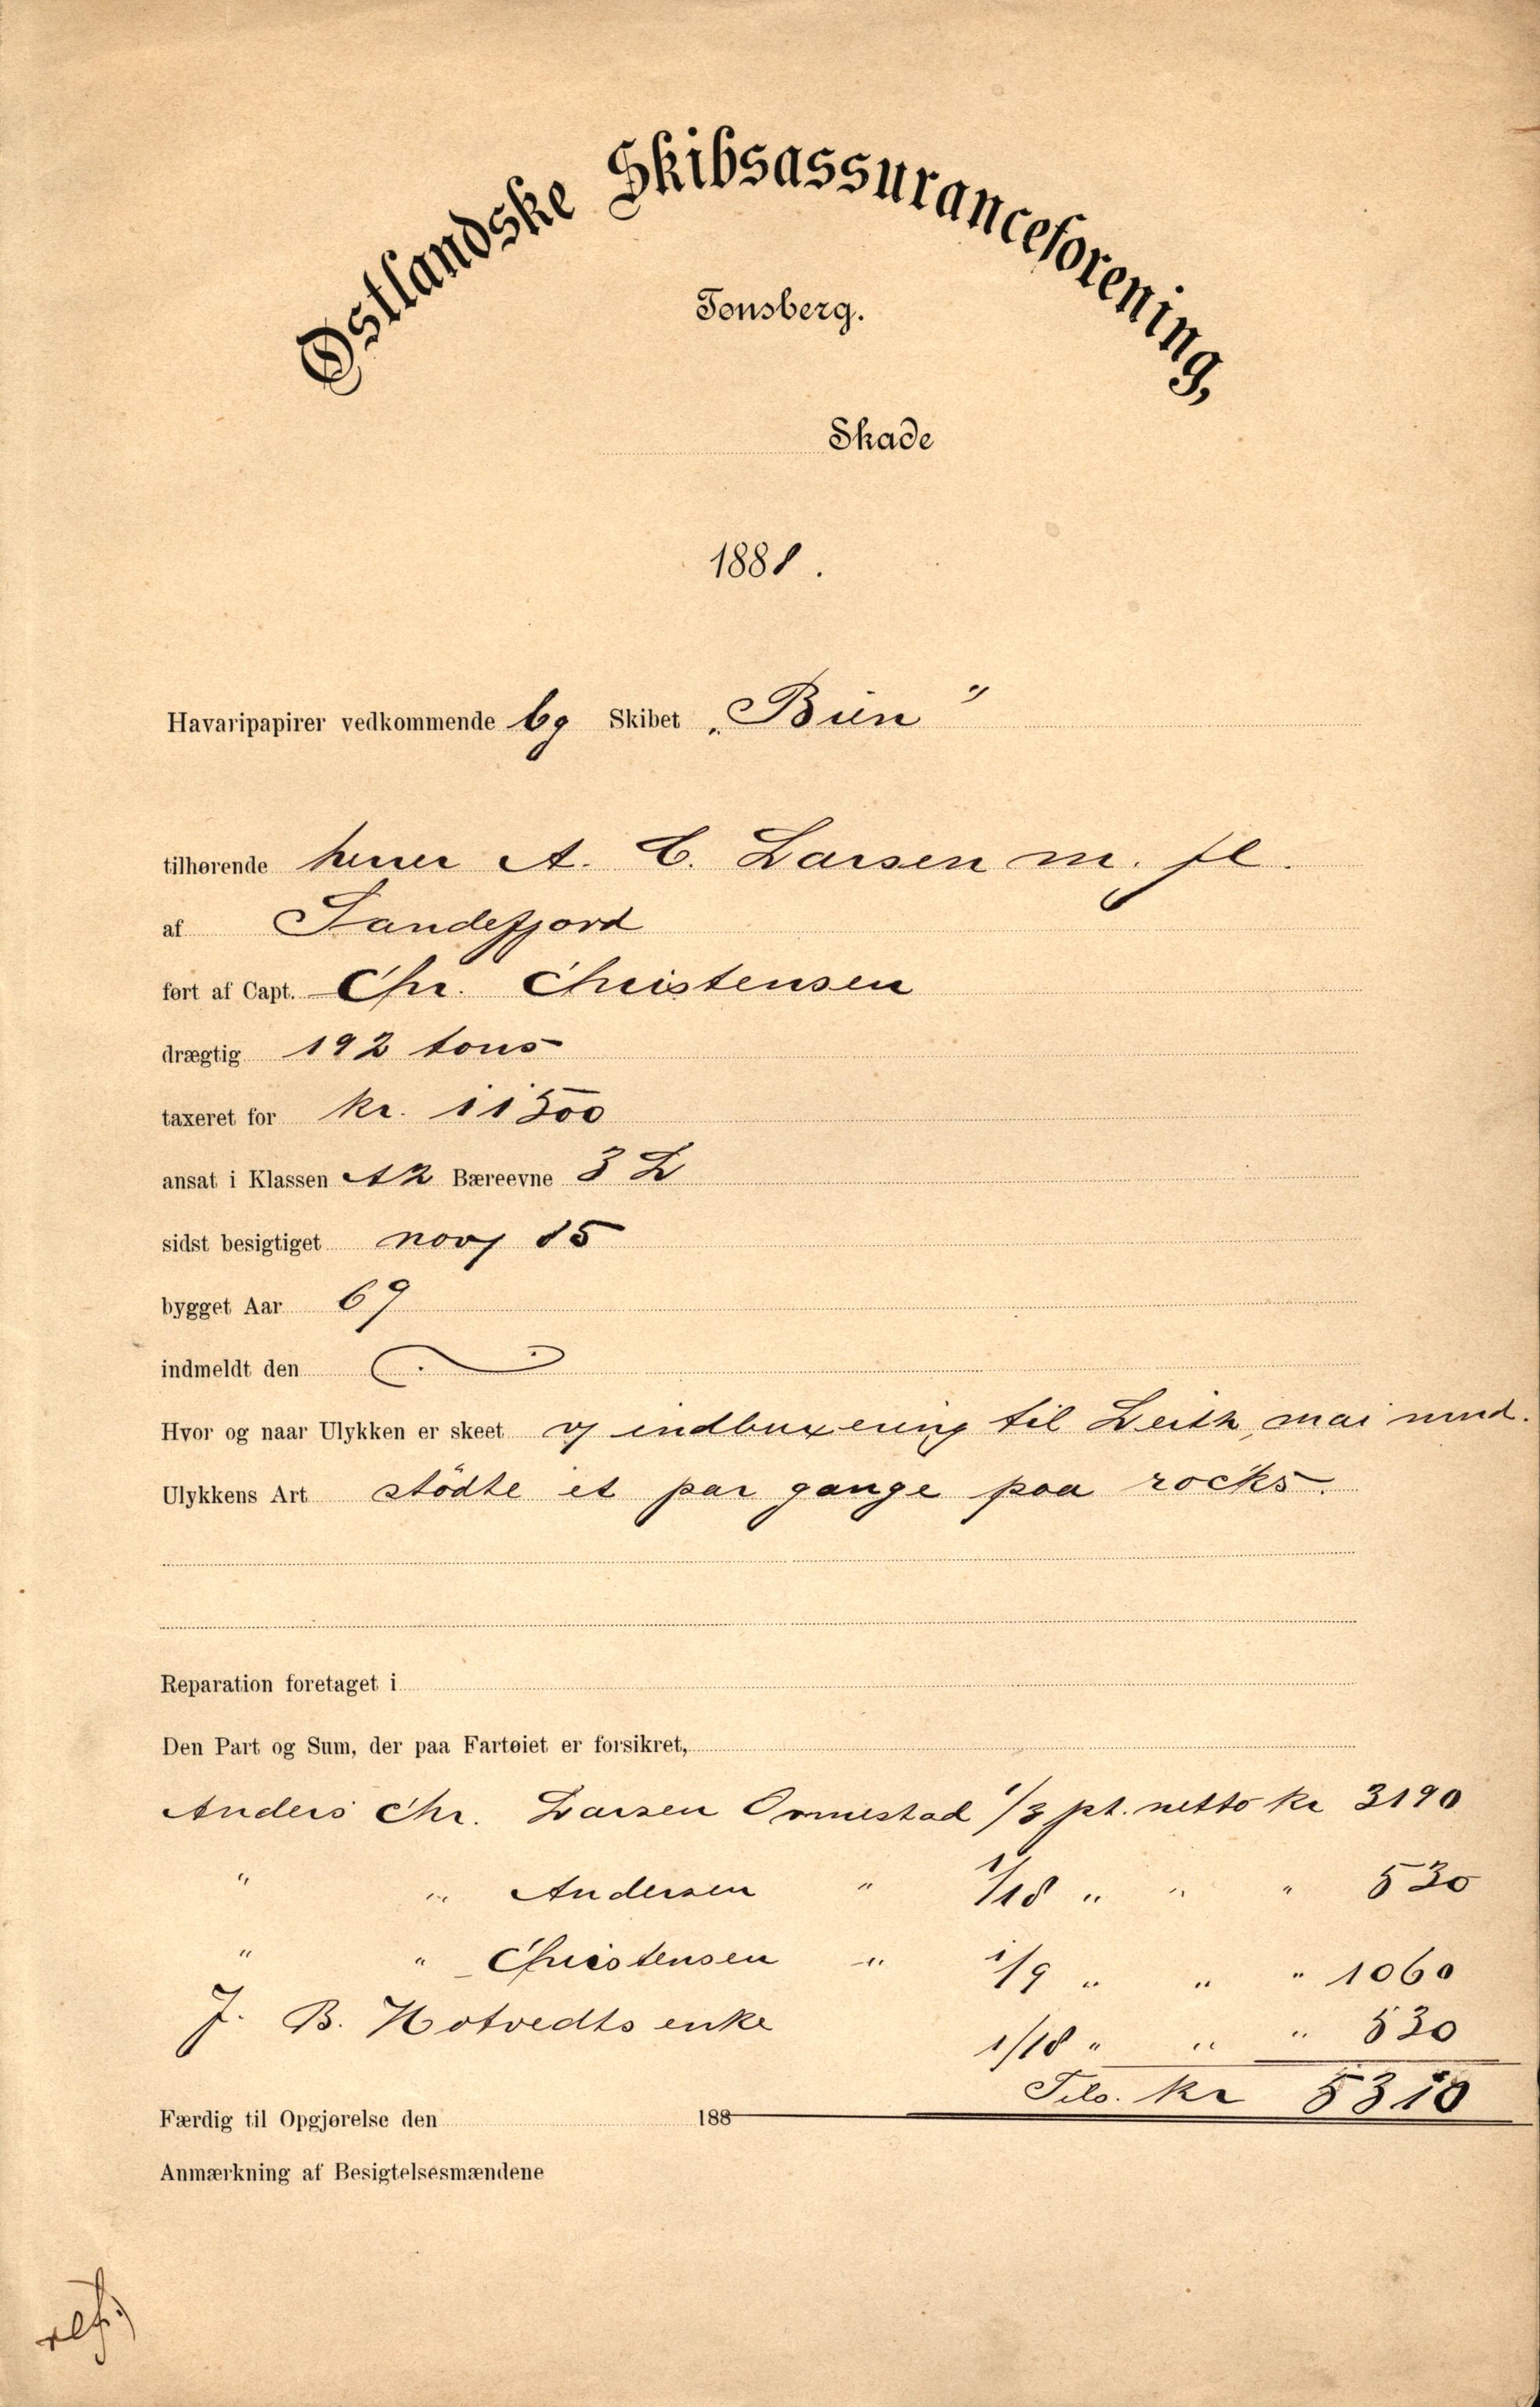 Østlandske Skibsassuranceforening,
Tønsberg.
Skade
1888.
Havaripapirer vedkommende bg Skibet „Bien"
tilhørende herrer A. C. Larsen m. fl.
af Sandefjord
ført af Capt. Chr. Christensen
drægtig 192 tons
taxeret for kr. 11500
ansat i Klassen A2 Bæreevne 3 Z
sidst besigtiget novr 85
bygget Aar 69
indmeldt den
Hvor og naar Ulykken er skeet v/ indbuxering til Leith, mai
Ulykkens Art stödte et par gange paa rocks.
Reparation foretaget i
Den Part og Sum, der paa Fartøiet er forsikret,
Anders Chr. Larsen Ormestad 1/3 pt. netto kr 3190
" " Andersen " 1/18 " " " 530
" " Christensen " 1/9 " " " 1060
J. B. Hotvedts enke 1/18 " " " 530
Tils. kr 5310
Færdig til Opgjørelse den 188
Anmærkning af Besigtelsesmændene